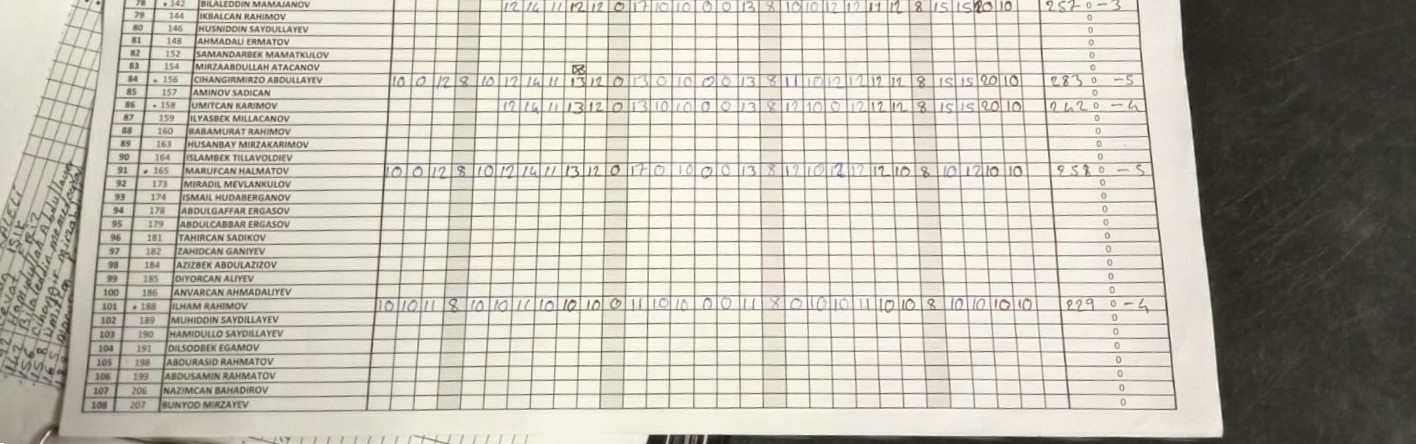 78 • 142 BILALEDDIN MAMAJANOV 12 14 11 12 12 0 17 10 10 0 0 13 8 10 10 12 12 11 12 8 15 15 20 10 257 0 - 3
79 144 IKBALCAN RAHIMOV 0
80 146 HUSNIDDIN SAYDULLAYEV 0
81 148 AHMADALI ERMATOV 0
82 152 SAMANDARBEK MAMATKULOV 0
83 154 MIRZAABDULLAH ATACANOV 0
84 • 156 CIHANGIRMIRZO ABDULLAYEV 10 0 12 8 10 12 14 11 13 12 0 13 0 10 0 0 13 8 11 10 12 12 12 12 8 15 15 20 10 283 0 - 5
85 157 AMINOV SADICAN 0
86 • 158 UMITCAN KARIMOV 12 14 11 13 12 0 13 10 10 0 0 13 8 12 10 0 12 12 12 8 15 15 20 10 242 0 - 4
87 159 ILYASBEK MILLACANOV 0
88 160 BABAMURAT RAHIMOV 0
89 163 HUSANBAY MIRZAKARIMOV 0
90 164 ISLAMBEK TILLAVOLDIEV 0
91 • 165 MARUFCAN HALMATOV 10 0 12 8 10 12 14 11 13 12 0 17 0 10 0 0 13 8 12 10 12 12 12 10 8 10 12 10 10 258 0 - 5
92 173 MIRADIL MEVLANKULOV 0
93 174 ISMAIL HUDABERGANOV 0
94 178 ABDULGAFFAR ERGASOV 0
95 179 ABDULCABBAR ERGASOV 0
96 181 TAHIRCAN SADIKOV 0
97 182 ZAHIDCAN GANIYEV 0
98 184 AZIZBEK ABDULAZIZOV 0
99 185 DIYORCAN ALIYEV 0
100 186 ANVARCAN AHMADALIYEV 0
101 • 188 ILHAM RAHIMOV 10 10 11 8 10 10 11 10 10 10 0 11 10 10 0 0 11 8 0 10 10 11 10 10 8 10 10 10 10 229 0 - 4
102 189 MUHIDDIN SAYDILLAYEV 0
103 190 HAMIDULLO SAYDILLAYEV 0
104 191 DILSODBEK EGAMOV 0
105 198 ABDURASID RAHMATOV 0
106 199 ABDUSAMIN RAHMATOV 0
107 206 NAZIMCAN BAHADIROV 0
108 207 BUNYOD MIRZAYEV 0